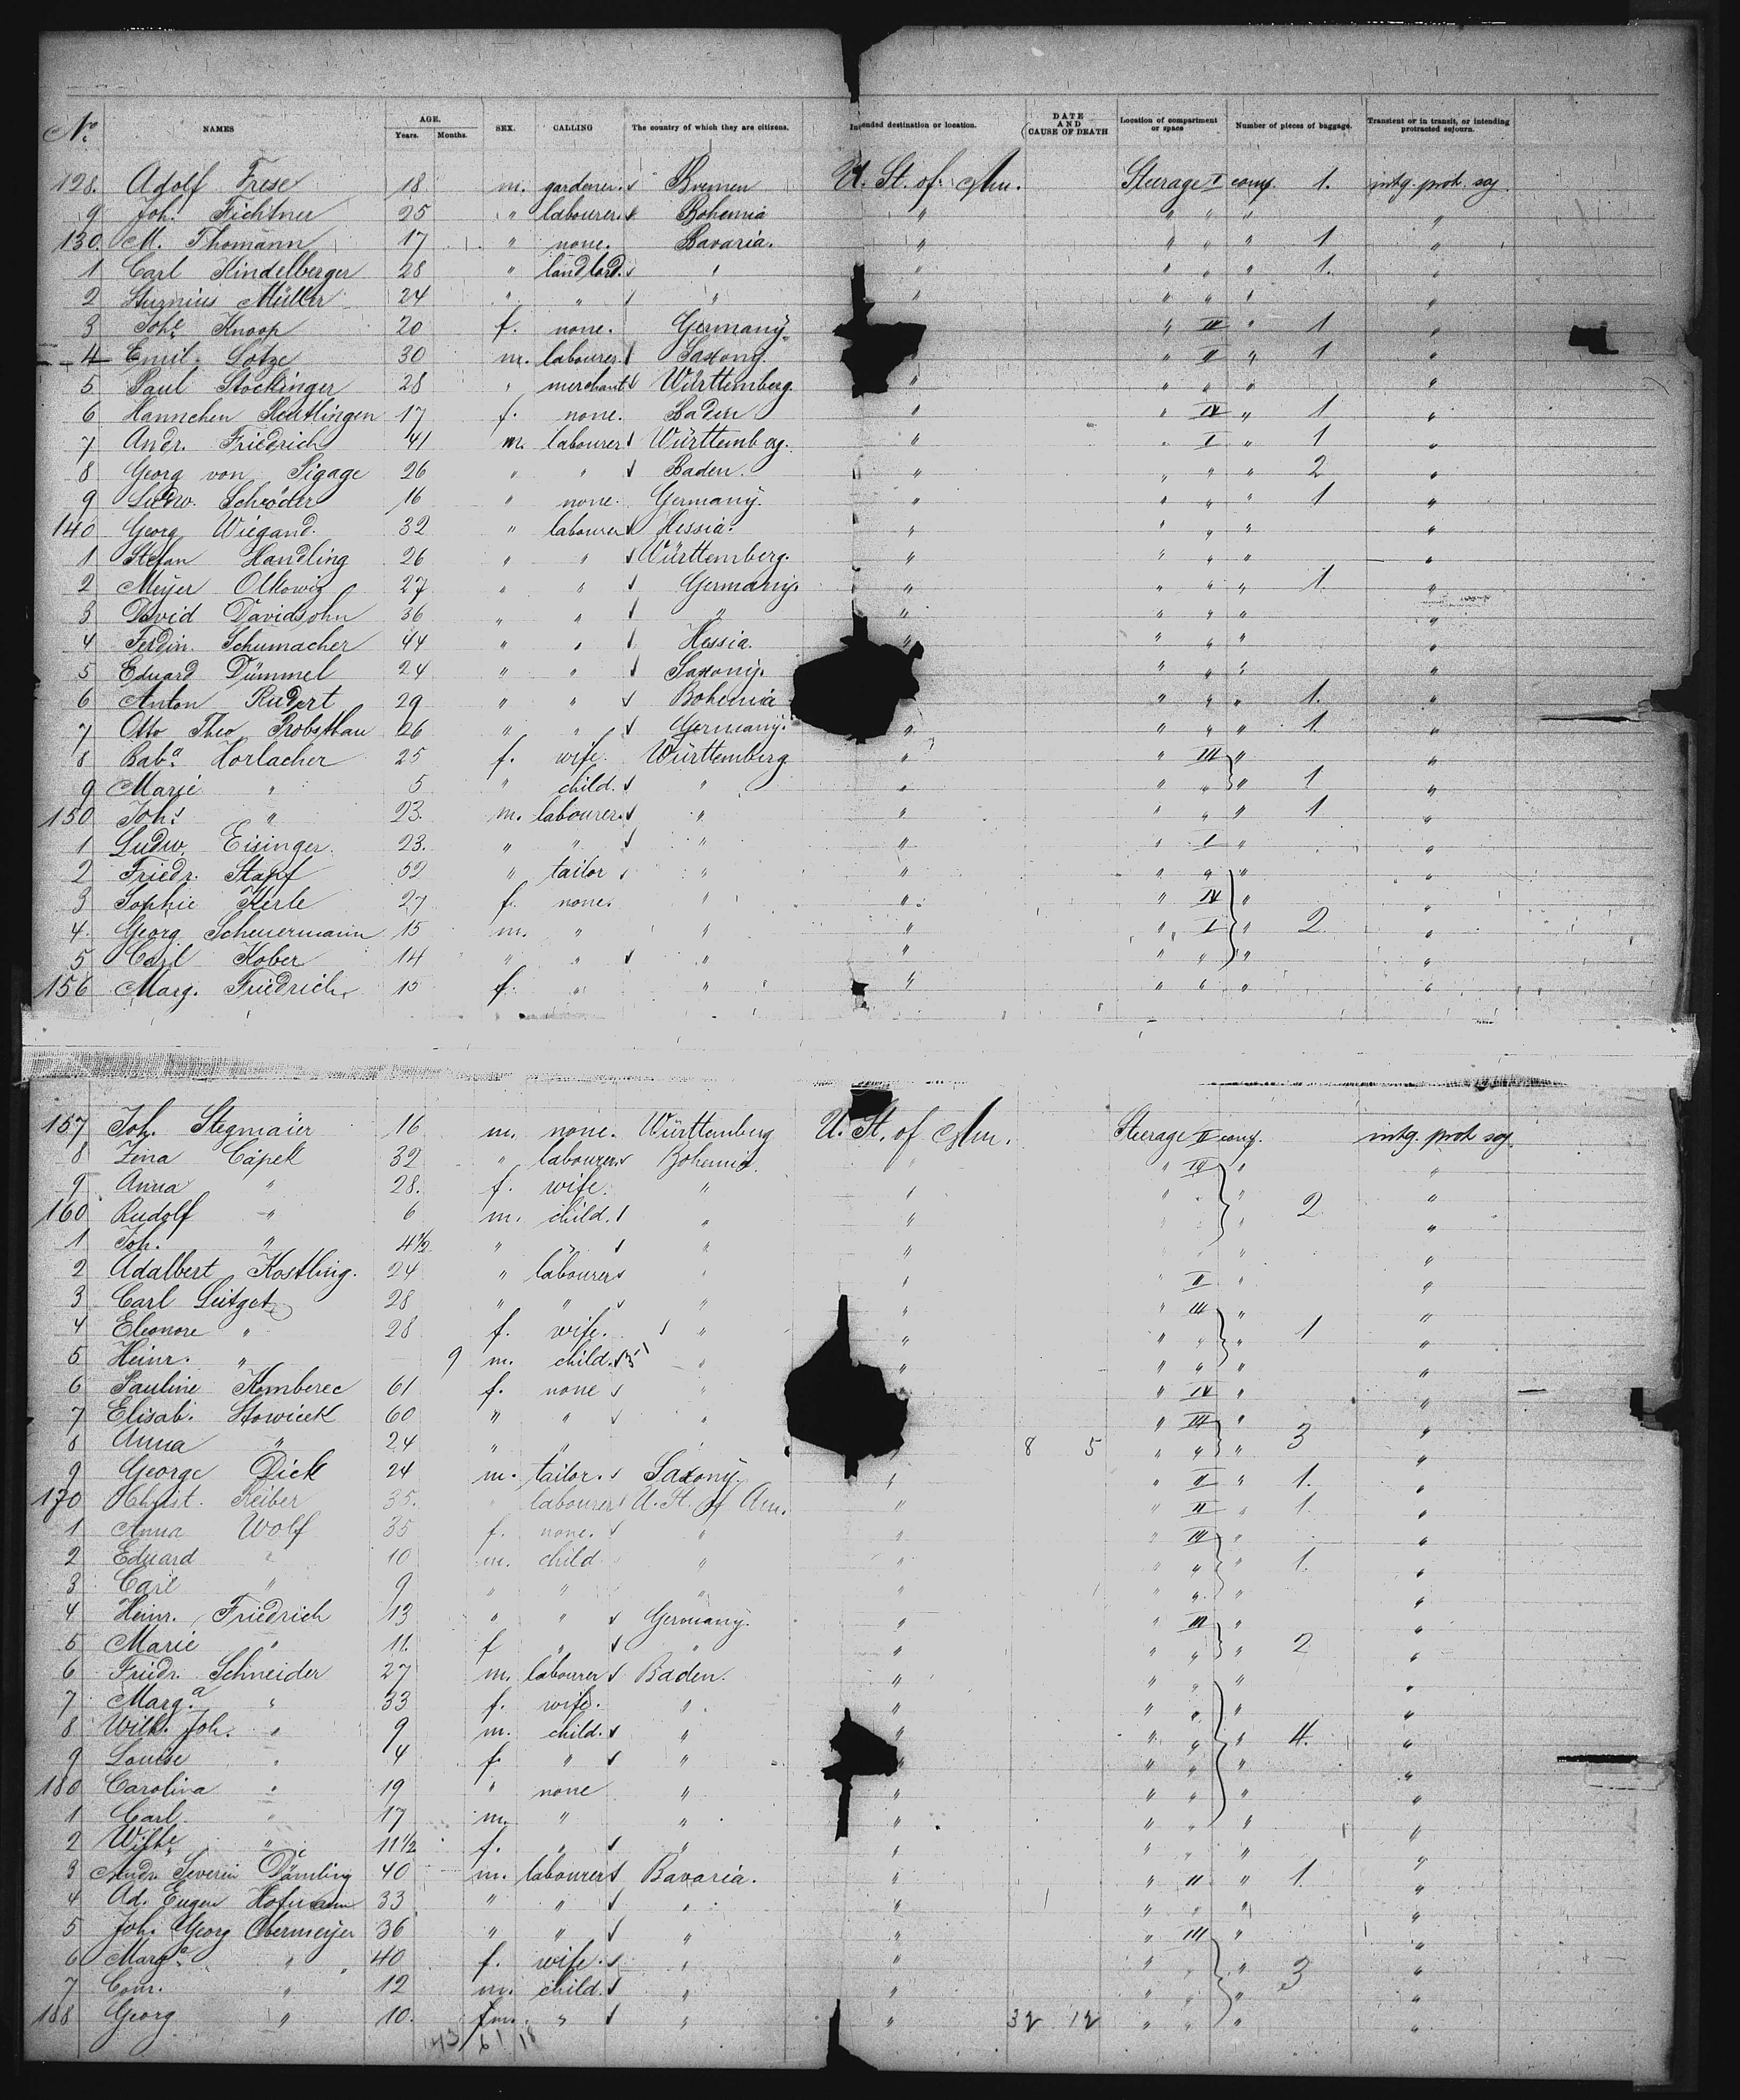 No. NAMES AGE. Years. Months. SEX. CALLING The country of which they are citizens. Intended destination or location. DATE AND CAUSE OF DEATH Location of compartment or space Number of pieces of baggage. Transient or in transit, or intending protracted sojourn.
128. Adolf Frese 18 m. gardener. Bremen U. St. of Am. Steerage I comp. 1. intg. prot. soj.
9 Joh. Fichtner 25 " labourer. Bohemia " " " " "
130. M. Thomann 17 " none. Bavaria. " " " " 1 "
1 Carl Kindelberger 28 " landlord. " " " " " 1. "
2 Müller 24 " " " " " " " "
3 Johe. Knoop 20 f. none. Germany " III " 1 "
4 Emil Gotze 30 m. labourer. Saxony. " II " 1 "
5 Paul Stockinger 28 " merchant Württemberg. " " " " "
6 Hannchen Reutlingen 17 f. none. Baden " " IV " 1 "
7 Andr. Friedrich 41 m. labourer Württemberg. " " I " 1 "
8 Georg von Pigage 26 " " Baden. " " " " 2 "
9 Ludw. Schröder 16 " none. Germany. " " " " 1 "
140 Georg Wiegand. 32 " labourer Hessia. " " " " "
1 Stefan Handling 26 " " Württemberg. " " " " "
2 Meyer Olkowiz 27 " " Germany. " " " " 1. "
3 David Davidsohn 36 " " " " " " " "
4 Ferdin. Schumacher 44 " " Hessia. " " " " "
5 Eduard Dümmel 24 " " Saxony. " " " "
6 Anton Rudert 29 " " Bohemia " " " 1. "
7 Otto Theo. Probsthau 26 " " Germany. " " " " 1. "
8 Baba. Horlacher 25 f. wife. Württemberg " " III " "
9 Marie " 5 " child. " " " " " 1 "
150 Johs. " 23. m. labourer. " " " " " 1 "
1 Ludw. Eisinger. 23. " " " " " I " "
2 Friedr. Stapf 52 " tailor " " " " " "
3 Sophie Kerle 27 f. none. " " " IV " "
4. Georg Scheuermann 15 m. " " " " I " 2 "
5 Carl Kober 14 " " " " " " " "
156 Marg. Friedrich 15 f. " " " " " " "
157 Joh. Stegmaier 16 m. none. Württemberg U. St. of Am. Steerage II comp. intg. prot. soj.
8 Capek 32 " labourer Bohemia. " " III " "
9 Anna " 28. f. wife. " " " " " "
160 Rudolf " 6 m. child. " " " " " 2 "
1 Joh. " 4 1/2 " " " " " " " "
2 Adalbert Kostling. 24 " labourer " " " II " "
3 Carl 28 " " " " " III " "
4 Eleonore " 28 f. wife. " " " " " 1 "
5 Heinr. " 9 m. child. " " " " " "
6 Pauline Komberec 61 f. none " " IV " "
7 Elisab. 60 " " " " III " "
8 Anna " 24 " " " 8 5 " " " 3 "
9 George Dick 24 m. tailor. Saxony. " " II " 1. "
170 Christ. Reiber 35. " labourer U. St. of Am. " " II " 1. "
1 Anna Wolf 35 f. none. " " " III " "
2 Eduard " 10 m. child " " " " " 1. "
3 Carl " 9 " " " " " " " "
4 Heinr. Friedrich 13 " " Germany. " " III " "
5 Marie " 11. f " " " " " " 2 "
6 Friedr. Schneider 27 m. labourer Baden. " " " " "
7 Marga. " 33 f. wife. " " " " " "
8 Wilh. Joh. " 9 m. child. " " " " " 4. "
9 Louise " 4 f. " " " " " " "
180 Carolina " 19 " none " " " " " "
1 Carl. " 17 m. " " " " " " "
2 Wilhe. " 11 1/2 f. " " " " " " "
3 Andr. Severin Dömling 40 m. labourer Bavaria. " " II " 1. "
4 Ad. Eugen Hofmann 33 " " " " " " " "
5 Joh. Georg Obermeyer 36 " " " " " III " "
6 Marga. " 40 f. wife. " " " " " 3 "
7 " 12 m. child. " " " " " "
188 Georg " 10. m. " " " 32 12 " " " "
43 61 18